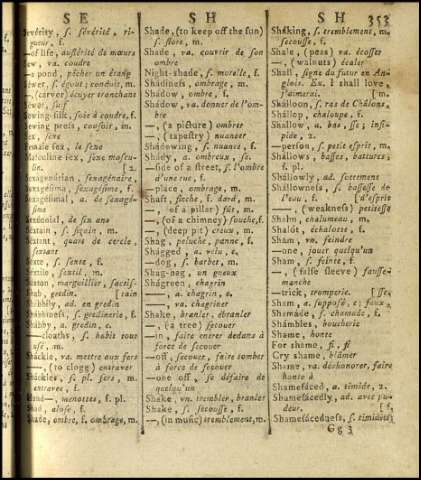 S E
S H
S H
353
Sevérity, s. sévérité, ri-
gueur, f.
—of life, austérité de mœurs
Sew, va. coudre
—a pond, pêcher un étang
Sewer, s. égout; conduit, m.
—, (carver) écuyer tranchant
Sewer, suif
Sewing-silk, soie à coudre, f.
Sewing press, cousoir, m.
Sex, sexe
Female sex, le sexe
Masculine sex, sexe mascu-
lin. [2.
Sexagenárian, sexagénaire,
Sexagésima, sexagésime, f.
Sexagésimal, a. de sexagé-
sime
Sexénnial, de six ans
Séxtain, s. sixain, m.
Sextant, quart de cercle,
sextant
s. sexte, f.
Séxtile, s. sextil, m.
marguillier, sacris-
Shab, gredin. [tain
Shábbily, ad. en gredin
Shábbiness, s. gredinerie, f.
Shábby, a. gredin, e.
—cloaths, s. habit tout
usé, m.
Sháckle, va. mettre aux fers
—, (to clogg) entraver
Shàckles, s. pl. fers, m.
entraves, f.
menottes, f. pl.
Shad, alose, f.
Shade, ombre, f. ombrage, m.
Shade, (to keep off the sun)
s. store, m.
Shade, va. couvrir de son
ombre
Night-shade, s. morelle, f.
Shádiness, ombrage, m.
Shádow, ombre, f.
Shádow, va. donner de l'om-
bre
—, (a picture) ombrer
—, (tapestry) nuancer
Shádowing, s. nuance, f.
Shády, a. ombreux, se.
—side of a street, s. l'ombre
d'une rue, f.
—place, ombrage, m.
Shaft, fleche, f. dard, m.
—, (of a pillar) fût, m.
—, (of a chimney) souche, f.
—, (deep pit) creux, m.
Shag, peluche, panne, f.
Shàgged, a. velu, e.
—dog, s. barbet, m.
Shag-rag, un gueux
Shágreen, chagrin
—, a. chagrin, e.
—, va. chagriner
Shake, branler, ébranler
—, (a tree) secouer
—in, faire entrer dedans à
force de secouer
—off, secouer, faire tomber
à force de secouer
—one off, se défaire de
quelqu'un
Shake, vn. trembler, branler
Shake, s. secousse, f.
—, (in music) tremblement, m.
Sháking, s. tremblement, m.
secousse, f.
Shale, (peas) va. écosser
—, (walnuts) écaler
Shall, signe du futur en An-
glois. Ex. I shall love,
j'aimerai. [m.
Shálloon, s. ras de Châlons,
Shállop, chaloupe, f.
Shallow, a. bas, se; insi-
pide, 2.
—person, s. petit esprit, m.
Shállows, basses, battures,
f. pl.
Shállowly, ad. sottement
Shállowness, s. bassesse de
l'eau, f. [d'esprit
—, (weakness) petitesse
Shalm, chalumeau, m.
Shalót, échalotte, f.
Sham, vn. feindre
—one, jouer quelqu'un
Sham, s. feinte, f.
—, (false sleeve) fausse-
manche
—trick, tromperie. [sse,
Sham, a. supposé, e; faux,
Shamáde, s. chamade, f.
Shámbles, boucherie
Shame, honte
For shame, fi, fi
Cry shame, blâmer
Shame, va. déshonorer, faire
honte à
Shamefáced, a. timide, 2.
Shamefácedly, ad. avec pu-
deur. [f.
Shamefácedness, s. timidité,
G g 3